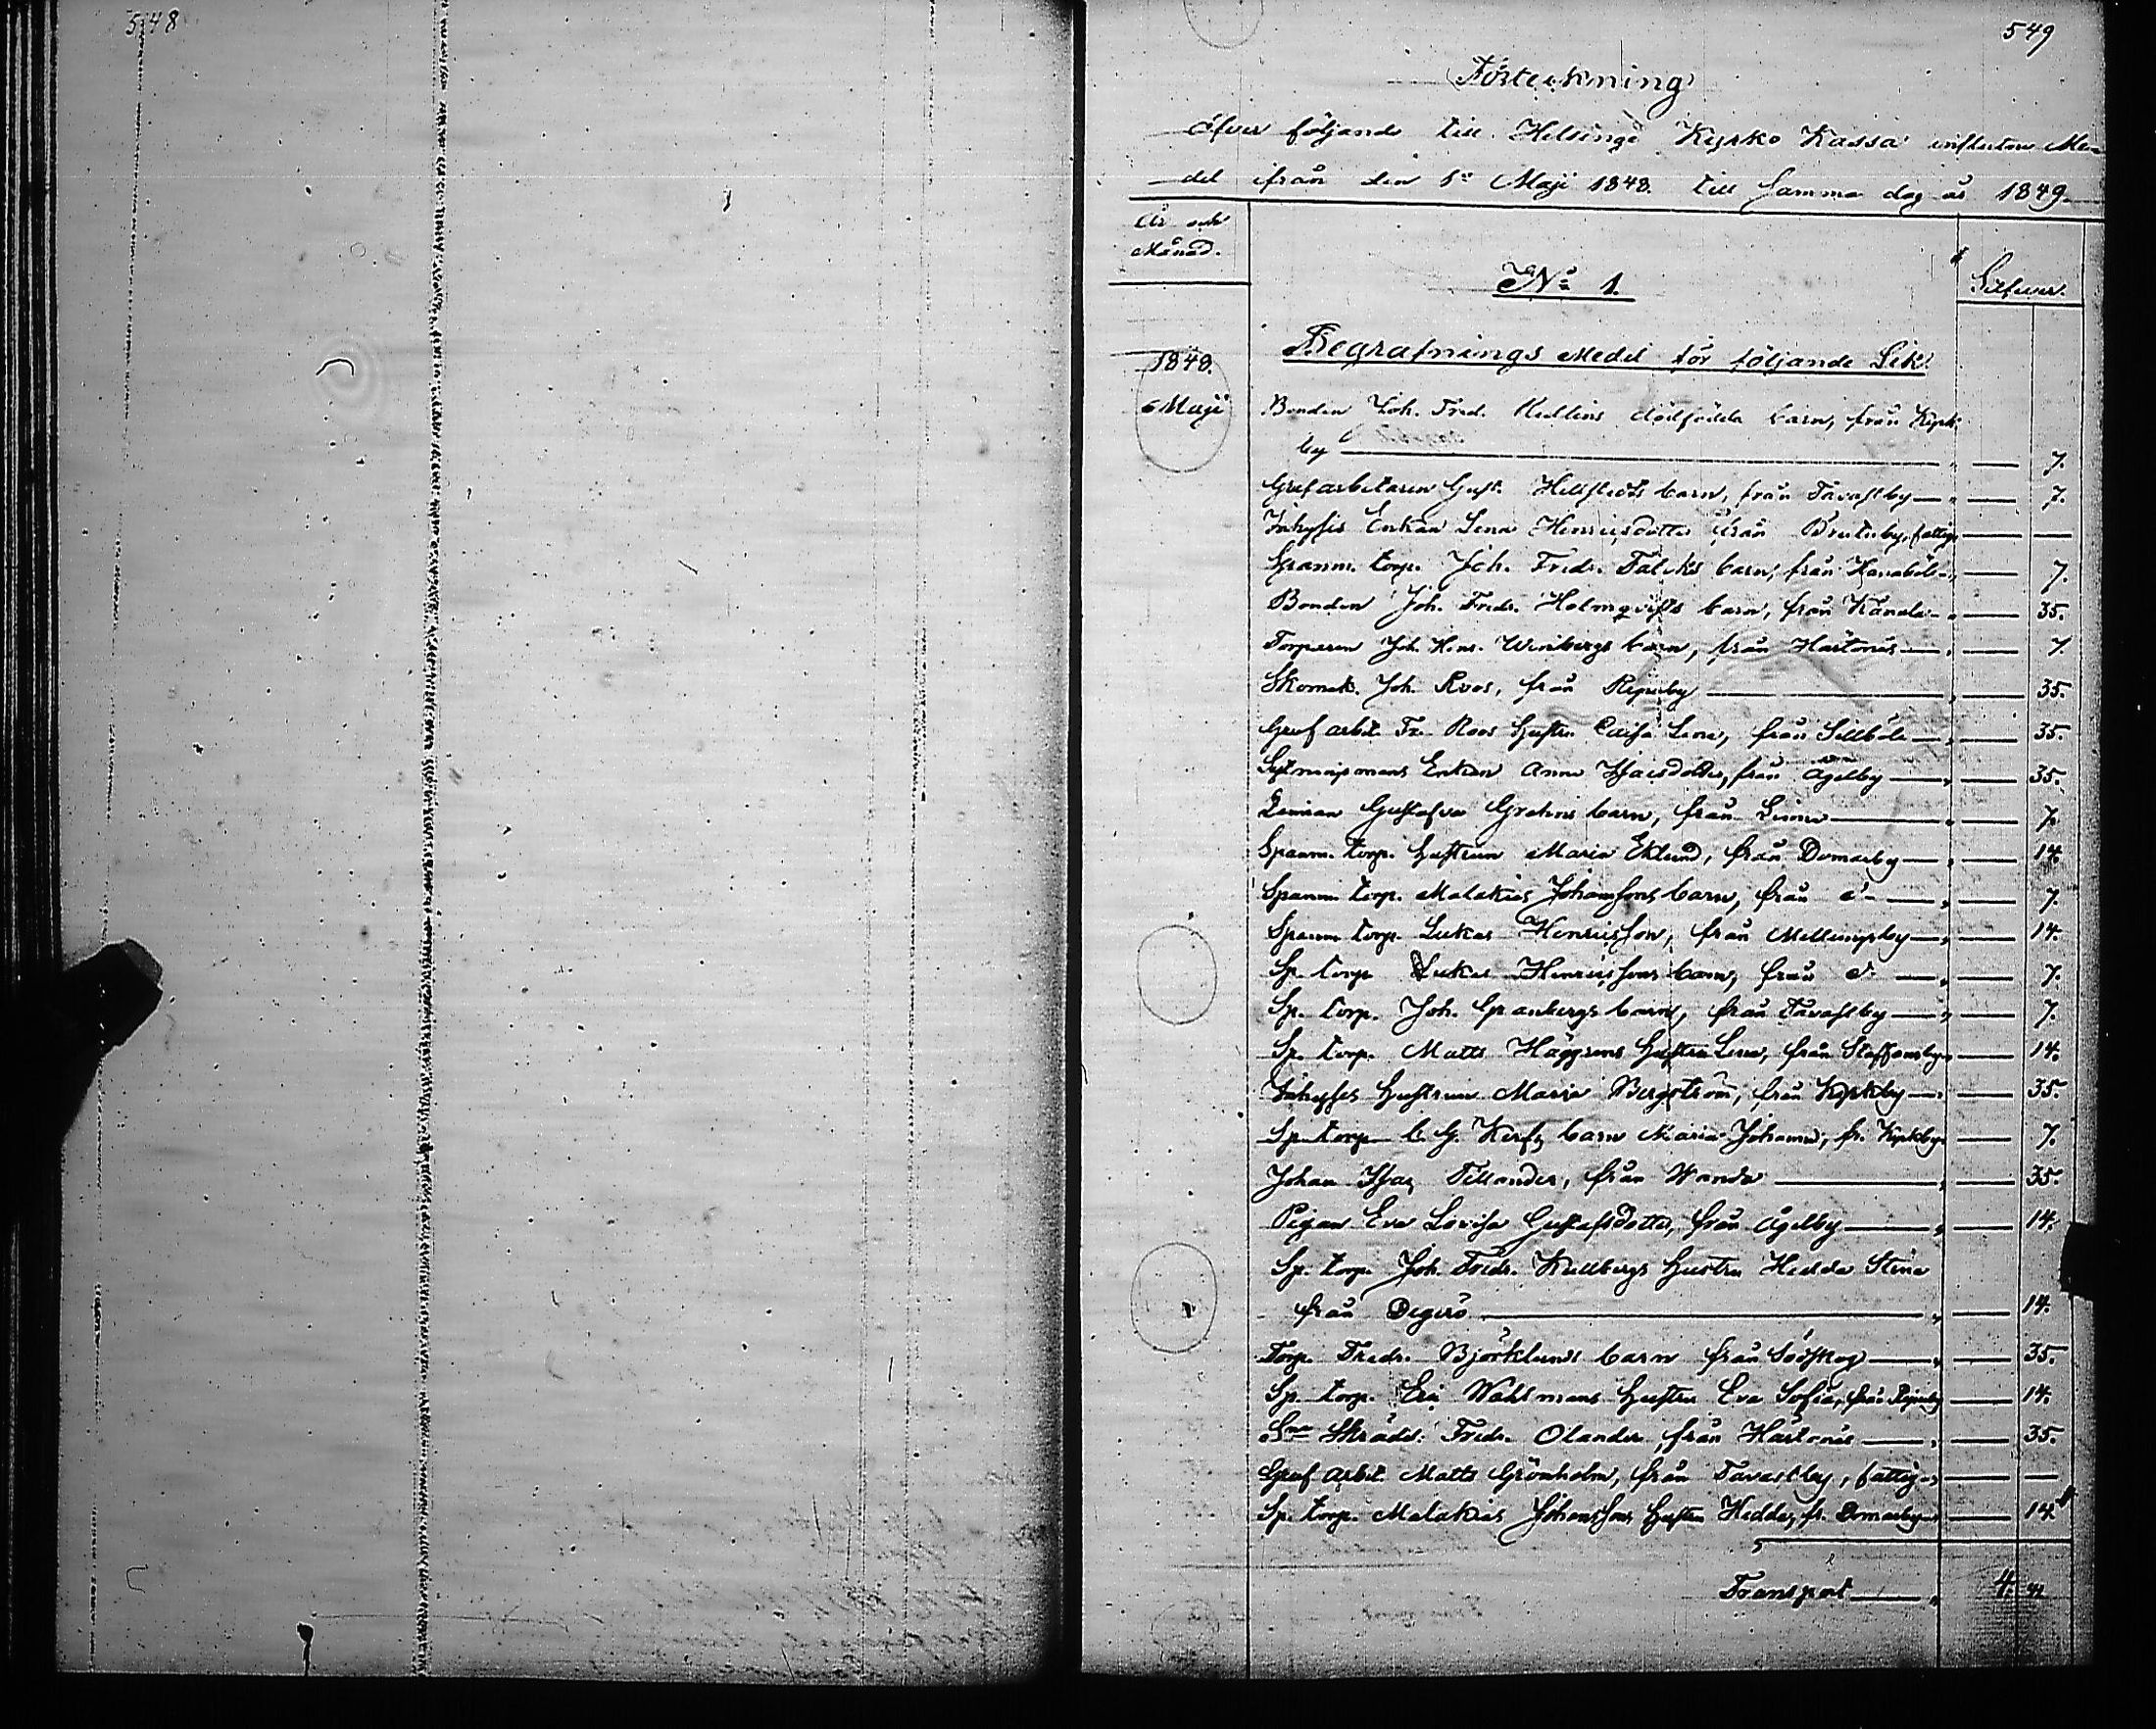 548
549
Förteckning
öfver följande till Helsinge Kyrko Kassa influtne Me-
del ifrån den 1ste Maji 1848. till samma dag år 1849.
År och
Månad.
No 1.
Silfver.
1848.
Begrafnings Medel för följande Lik.
6 Maji
Bonden Joh. Fred. dödfödda barn, från Kyrk-
by 7.
Grufarbetaren Gust. Hellstedts barn, från Tavastby 7.
Inhyses Enkan Lena Henricsdotter från fattig
Spanm. torp. Joh. Fredr. Falcks barn, från Hanaböle 7.
Bonden Joh. Fredr. Holmqvists barn, från Kånala 35.
Torparen Joh. Henr. Winbergs barn, från Hästonäs 7
Skomak. Joh. Roos, från Ripuby 35.
Grufarbet. Fr. Roos hustru Caisa Lena, från Sillböle 35.
Enkan Anna Isacsdotter, från Ågelby 35.
Gustafva barn, från 7.
Spanm. torp. hustrun Maria Eklund, från Domarby 14.
Spanm. torp. Malakias Johanssons barn, från d:o 7.
Spanm. torp. Lukas Henricsson, från Mellungsby 14.
Sp. torp. Lukas Henricssons barn, från d:o 7.
Sp. torp. Joh. Granbergs barn, från Tavastby 7.
Sp. torp. Matts Häggrens hustru Lena, från Staffansby 14.
Inhyses hustrun Maria Bergström, från Kyrkby 35.
Sp. torp. C. G. barn Maria Johanna, fr. Kyrkby 7.
Johan Isac Tillander, från Wanda 35.
Pigan Eva Lovisa Gustafsdotter, från Ågelby 14.
Sp. torp. Joh. Fredr. Kullbergs hustru Hedda Stina
från Degerö 14.
Torp. Fredr. Björklunds barn från Sööskog 35.
Sp. torp. Eric Wahlmans hustru Eva Sofia, från Ripuby 14.
Skrädd. Fredr. Olander, från Hästonäs 35.
Grufarbet. Matts Grönholm, från Tavastby, fattig
Sp. torp. Malakias Johanssons hustru Hedda, fr. Domarby 14.
Transport 4. 41